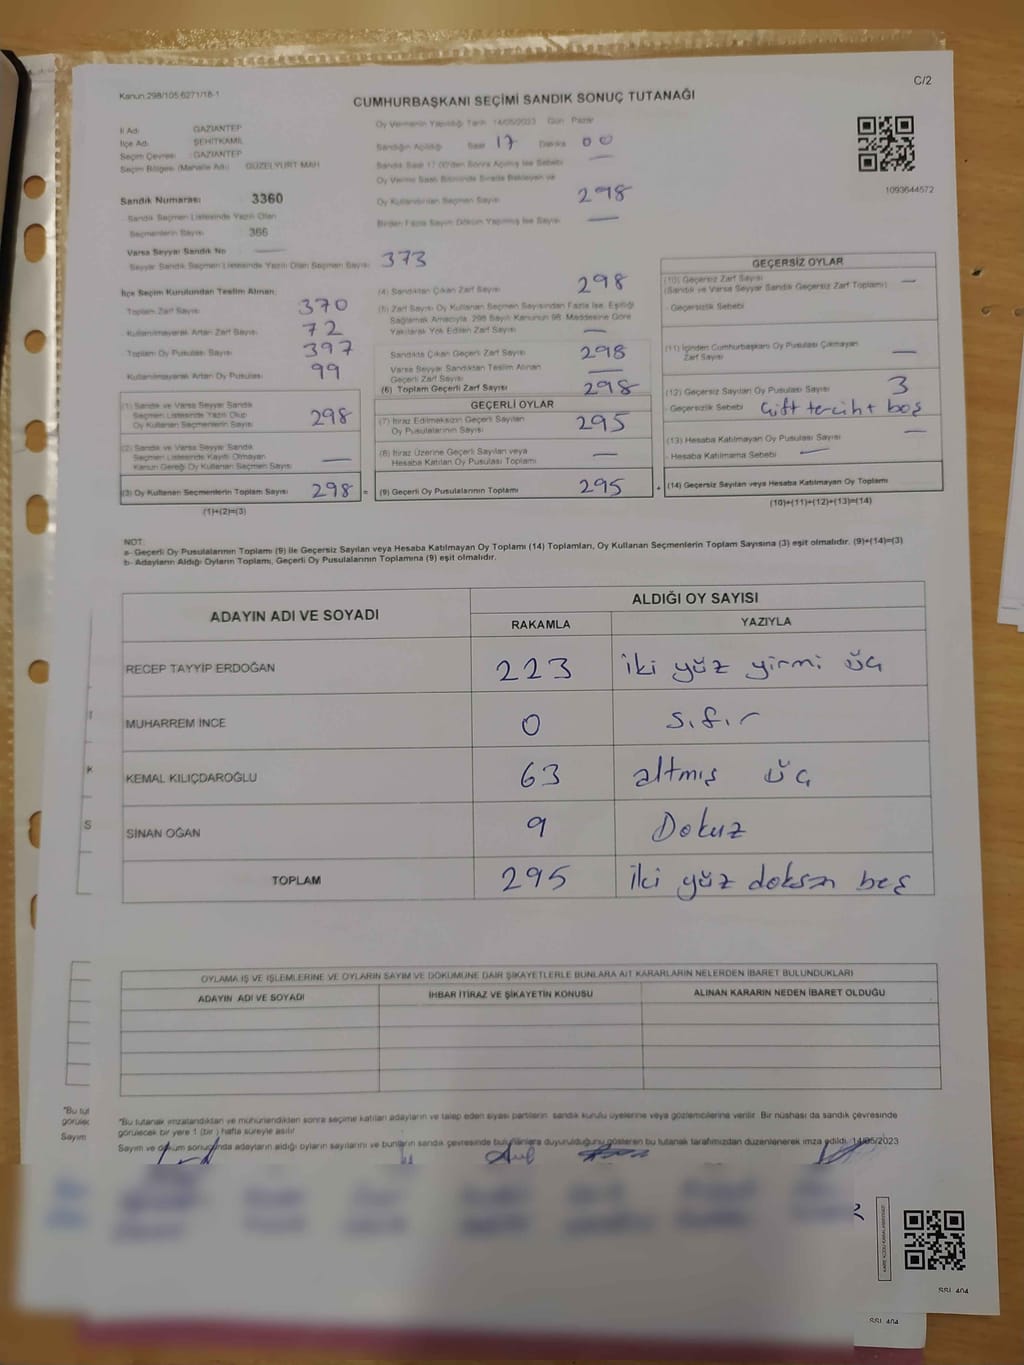 C/2
Kanun 298/105 6271/18-1
CUMHURBAŞKANI SEÇİMİ SANDIK SONUÇ TUTANAĞI
İl Adı: GAZİANTEP
İlçe Adı: ŞEHİTKAMİL
Seçim Çevresi: GAZİANTEP
Seçim Bölgesi (Mahalle Adı): GÜZELYURT MAH
Sandık Numarası: 3360
Sandık Seçmen Listesinde Yazılı Olan
Seçmenlerin Sayısı: 366
Varsa Seyyar Sandık No
Seyyar Sandık Seçmen Listesinde Yazılı Olan Seçmen Sayısı 373
Oy Vermenin Yapıldığı Tarih 14/05/2023 Gün Pazar
Sandığın Açıldığı Saat 17 Dakika 00
Sandık Saat 17.00'den Sonra Açılmış İse Sebebi —
Oy Verme Saati Bitiminde Sırada Bekleyen ve
Oy Kullandırılan Seçmen Sayısı 298
Birden Fazla Sayım Döküm Yapılmış İse Sayısı —
1093644572
İlçe Seçim Kurulundan Teslim Alınan:
Toplam Zarf Sayısı: 370
- Kullanılmayarak Artan Zarf Sayısı: 72
Toplam Oy Pusulası Sayısı: 397
- Kullanılmayarak Artan Oy Pusulası: 99
(1) Sandık ve Varsa Seyyar Sandık
Seçmen Listesinde Yazılı Olup
Oy Kullanan Seçmenlerin Sayısı 298
(2) Sandık ve Varsa Seyyar Sandık
Seçmen Listesinde Kayıtlı Olmayan
Kanun Gereği Oy Kullanan Seçmen Sayısı —
(3) Oy Kullanan Seçmenlerin Toplam Sayısı 298 =
(1)+(2)=(3)
(4) Sandıktan Çıkan Zarf Sayısı 298
(5) Zarf Sayısı Oy Kullanan Seçmen Sayısından Fazla İse, Eşitliği
Sağlamak Amacıyla, 298 Sayılı Kanunun 98. Maddesine Göre
Yakılarak Yok Edilen Zarf Sayısı —
Sandıkta Çıkan Geçerli Zarf Sayısı 298
Varsa Seyyar Sandıktan Teslim Alınan
Geçerli Zarf Sayısı —
(6) Toplam Geçerli Zarf Sayısı 298
GEÇERLİ OYLAR
(7) İtiraz Edilmeksizin Geçerli Sayılan
Oy Pusulalarının Sayısı 295
(8) İtiraz Üzerine Geçerli Sayılan veya
Hesaba Katılan Oy Pusulası Toplamı —
(9) Geçerli Oy Pusulalarının Toplamı 295 +
GEÇERSİZ OYLAR
(10) Geçersiz Zarf Sayısı —
(Sandık ve Varsa Seyyar Sandık Geçersiz Zarf Toplamı)
- Geçersizlik Sebebi
(11) İçinden Cumhurbaşkanı Oy Pusulası Çıkmayan
Zarf Sayısı —
(12) Geçersiz Sayılan Oy Pusulası Sayısı 3
- Geçersizlik Sebebi Çift tercih+ boş
(13) Hesaba Katılmayan Oy Pusulası Sayısı —
- Hesaba Katılmama Sebebi —
(14) Geçersiz Sayılan veya Hesaba Katılmayan Oy Toplamı
(10)+(11)+(12)+(13)=(14)
NOT:
a- Geçerli Oy Pusulalarının Toplamı (9) ile Geçersiz Sayılan veya Hesaba Katılmayan Oy Toplamı (14) Toplamları, Oy Kullanan Seçmenlerin Toplam Sayısına (3) eşit olmalıdır. (9)+(14)=(3)
b- Adayların Aldığı Oyların Toplamı, Geçerli Oy Pusulalarının Toplamına (9) eşit olmalıdır.
ADAYIN ADI VE SOYADI ALDIĞI OY SAYISI
RAKAMLA YAZIYLA
RECEP TAYYİP ERDOĞAN 223 iki yüz yirmi üç
MUHARREM İNCE 0 sıfır
KEMAL KILIÇDAROĞLU 63 altmış üç
SİNAN OĞAN 9 Dokuz
TOPLAM 295 iki yüz doksan beş
OYLAMA İŞ VE İŞLEMLERİNE VE OYLARIN SAYIM VE DÖKÜMÜNE DAİR ŞİKAYETLERLE BUNLARA AİT KARARLARIN NELERDEN İBARET BULUNDUKLARI
ADAYIN ADI VE SOYADI İHBAR İTİRAZ VE ŞİKAYETİN KONUSU ALINAN KARARIN NEDEN İBARET OLDUĞU
*Bu tutanak imzalandıktan ve mühürlendikten sonra seçime katılan adayların ve talep eden siyasi partilerin sandık kurulu üyelerine veya gözlemcilerine verilir. Bir nüshası da sandık çevresinde
görülecek bir yere 1 (bir) hafta süreyle asılır
Sayım ve döküm sonucunda adayların aldığı oyların sayılarını ve bunların sandık çevresinde bulunanlara duyurulduğunu gösteren bu tutanak tarafımızdan düzenlenerek imza edildi. 14/05/2023
SSL 404
SSL 404